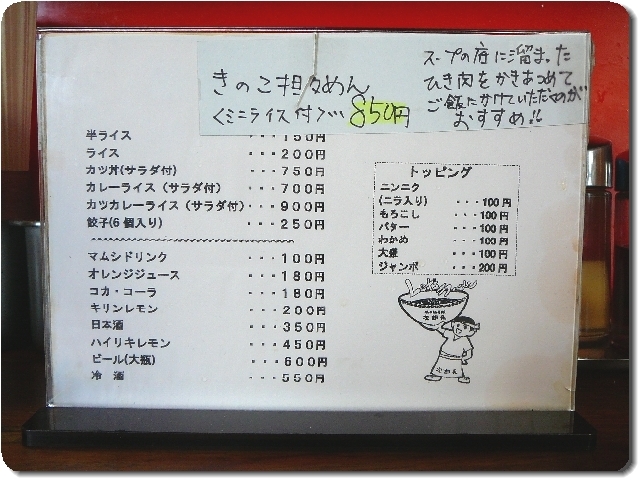 きのこ担々めん
〈ミニライス付〉… 850円
スープの底に溜まった
ひき肉をかきあつめて
ご飯にかけていただくのが
おすすめ!!
半ライス ・・・150円
ライス ・・・200円
カツ丼(サラダ付) ・・・750円
カレーライス（サラダ付） ・・・700円
カツカレーライス（サラダ付）・・・900円
餃子(6個入り) ・・・250円
マムシドリンク ・・・100円
オレンジジュース ・・・180円
コカ・コーラ ・・・180円
キリンレモン ・・・200円
日本酒 ・・・350円
ハイリキレモン ・・・450円
ビール(大瓶) ・・・600円
冷 酒 ・・・550円
トッピング
ニンニク
(ニラ入り) ・・・100円
もろこし ・・・100円
バター ・・・100円
わかめ ・・・100円
大盛 ・・・100円
ジャンボ ・・・200円